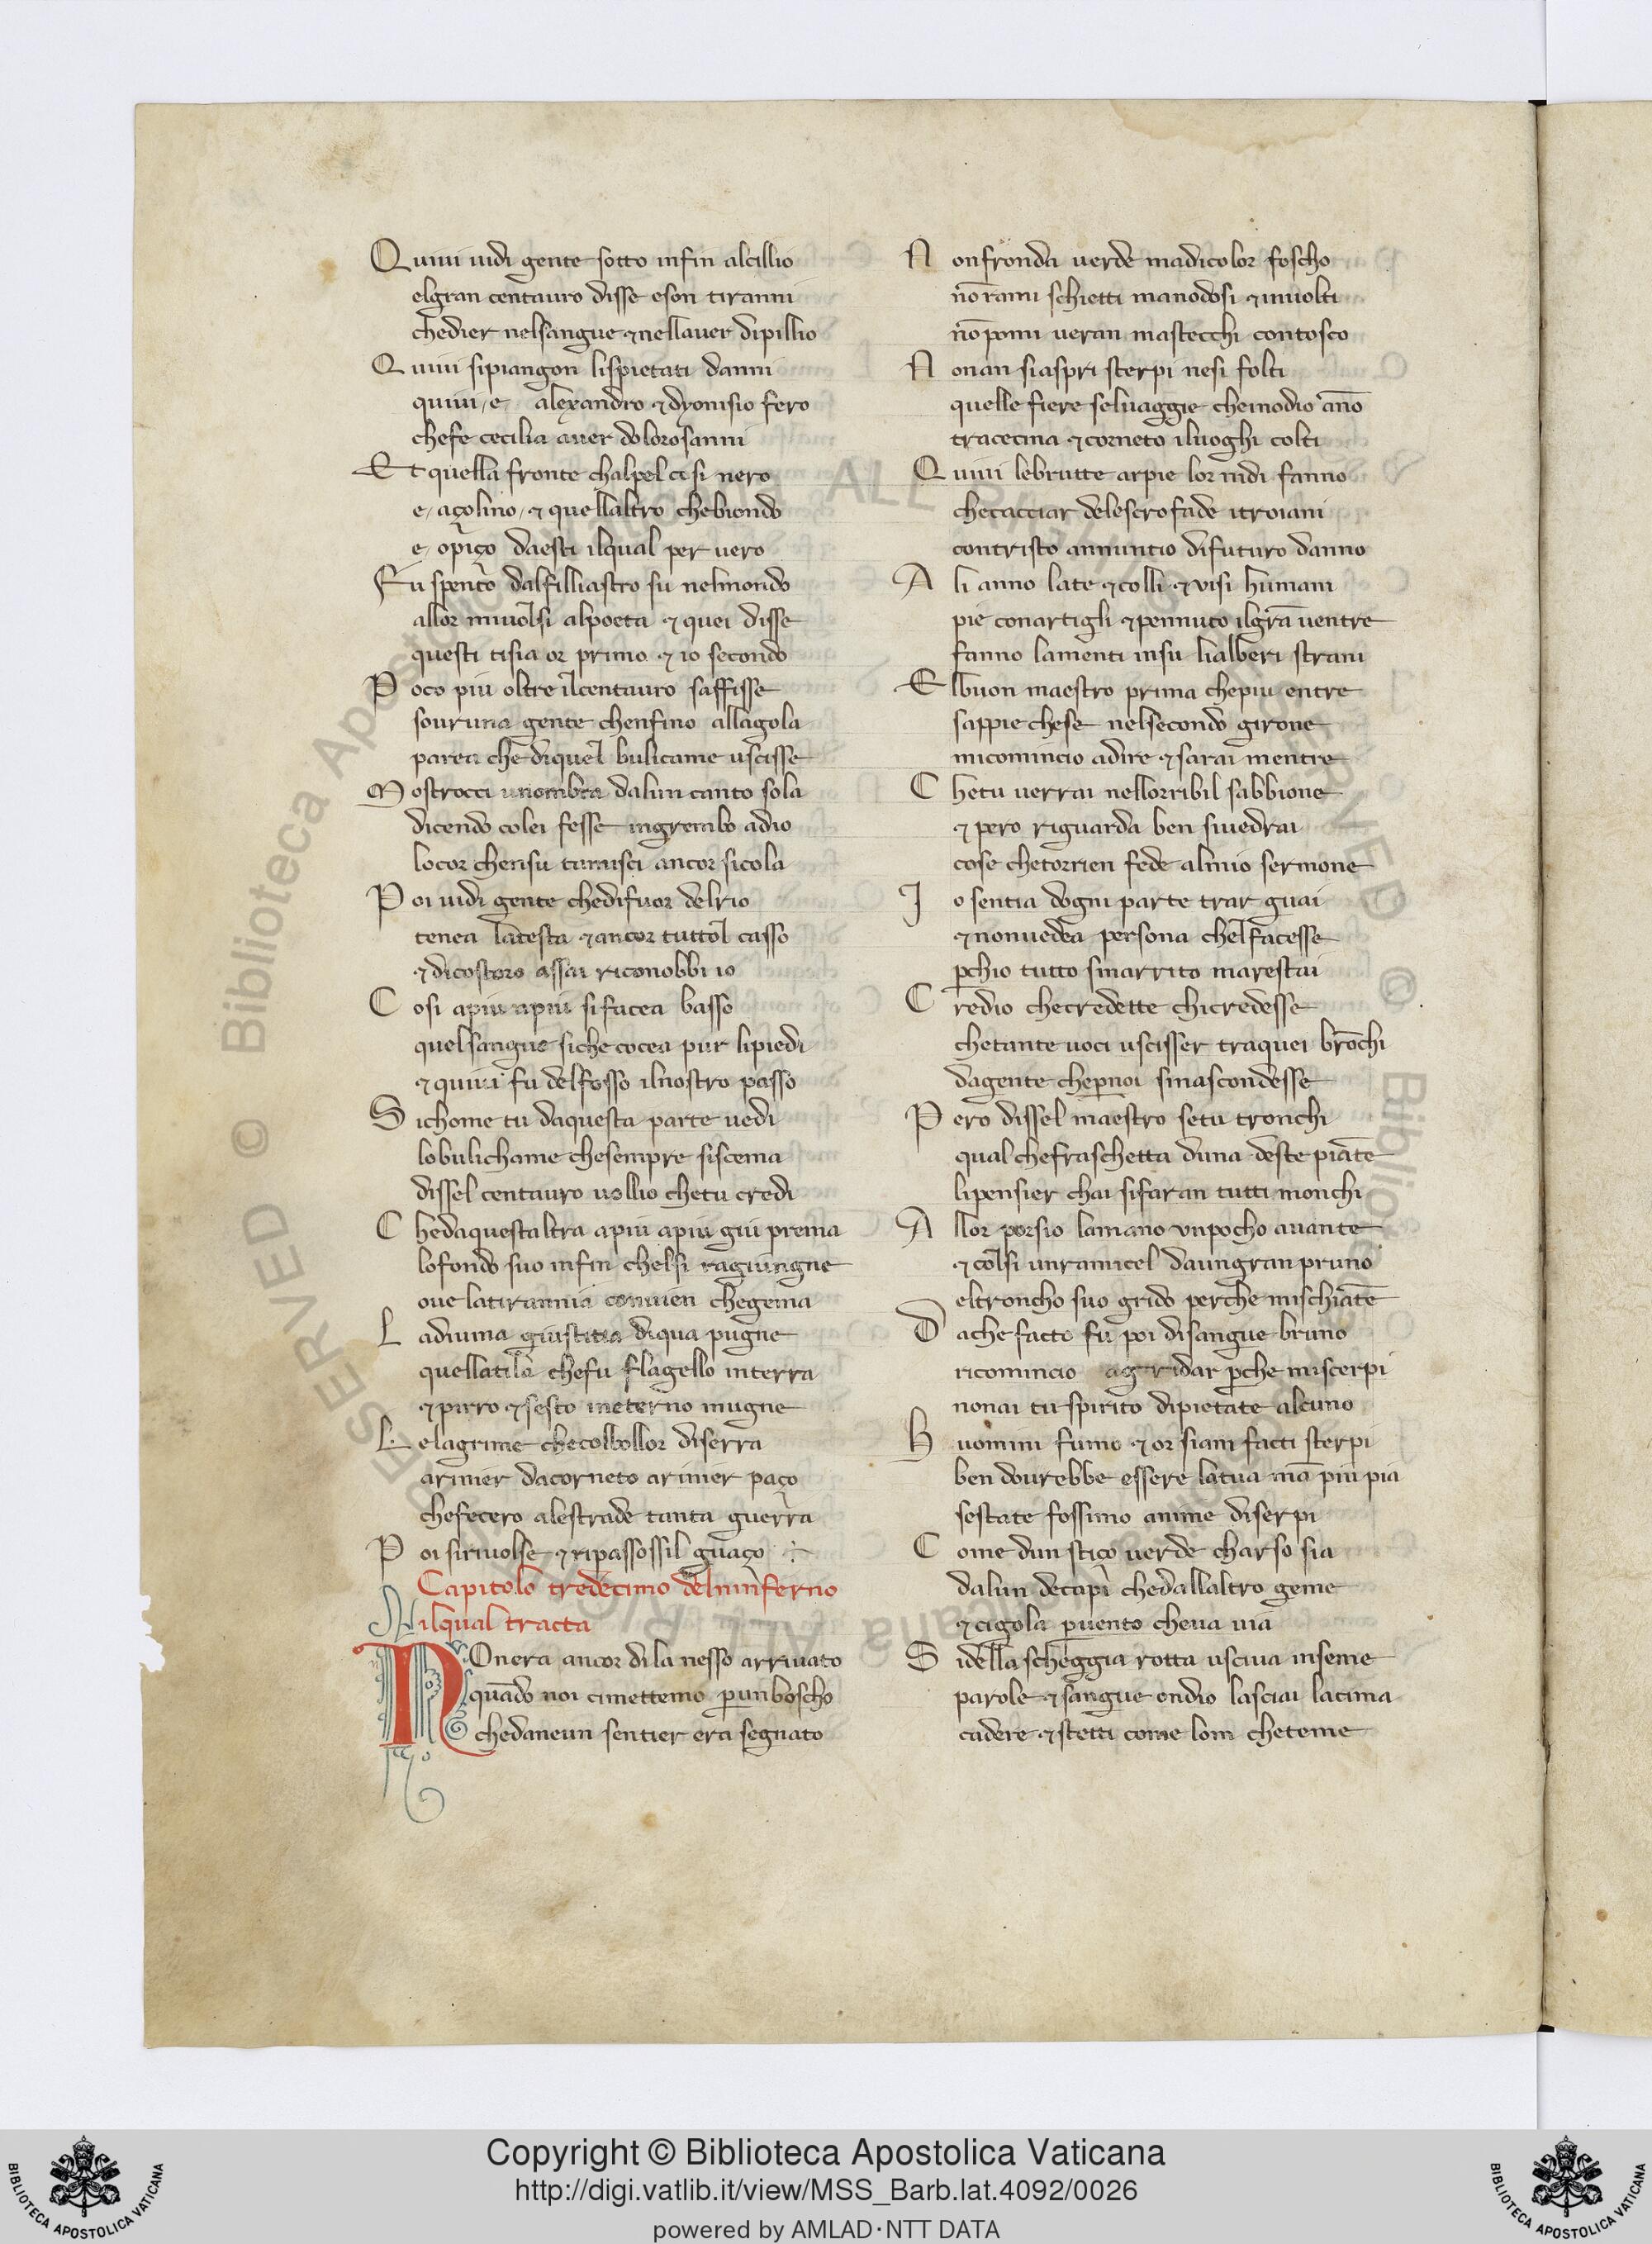 Quiui uidi gente sotto infin alcillio
elgran centauro disse eson tiranni
chedier nelsangue ⁊ nellauer dipillio
Quiui sipiangon lispietati danni
quiui /e/ alexandro ⁊ dyonisio fero
chefe cecilia auer dolorosanni
Et quella fronte chalpel cisi nero
e/ açolino/ ⁊ quellaltro chebiondo
e/ opiço daesti ilqual per uero
Fu spento dalfilliastro su nelmondo
allor miuolsi alpoeta ⁊ quei disse
questi tisia or primo ⁊ io secondo
Poco piu oltre ilcentauro saffisse
souruna gente chenfino allagola
parea che diquel bulicame uscisse
Mostrocci unombra dalun canto sola
dicendo colei fesse ingrembo adio
locor chensu tamisci ancor sicola
Poi uidi gente chedifuor delrio
tenea latesta ⁊ ancor tuttol casso
⁊ dicostoro assai riconobbi io
Cosi apiu apiu sifacea basso
quelsangue siche cocea pur lipiedi
⁊ quiui fu delfosso ilnostro passo
Sichome tu daquesta parte uedi
lobulichame chesempre siscema
dissel centauro uollio chetu credi
Chedaquestaltra apiu apiu giu prema
lofondo suo infin chelsi ragiungne
oue latirannia conuien chegema
Ladiuina giustitia diqua pugne
quellatila chefu flagello interra
⁊ pirro ⁊ sesto ineterno mugne
Lelagrime checolbollor diserra
arinier dacorneto arinier paço
chefecero alestrade tanta guerra
Poi siriuolse ⁊ ripassossil guaço
Capitolo tredecimo delninferno
Nilqual tracta
NOnera ancor dila nesso arriuato
quādo noi cimettemo ꝑunboscho
chedaneun sentier era segnato
Nonfronda uerde madicolor foscho
nō rami schietti manodosi ⁊ inuolti
nō pomi ueran mastecchi contosco
Nonan siaspri sterpi nesi folti
quelle fiere seluaggie chenodio āno
tracecina ⁊ corneto iluoghi colti
Quiui lebrutte arpie lor nidi fanno
checacciar delestrofade itroiani
contristo annuntio difuturo danno
Ali anno late ⁊ colli ⁊ visi humani
pie conartigli ⁊ pennuto ilgrā uentre
fanno lamenti insu lialberi strani
Elbuon maestro prima chepiu entre
sappie chese nelsecondo girone
micomincio adire ⁊ sarai mentre
Chetu uerrai nellorribil sabbione
⁊ pero riguarda ben siuedrai
cose chetorrien fede almio sermone
Io sentia dogni parte trar guai
⁊ nonuedea persona chelfacesse
ꝑchio tutto smarrito marestai
Credio checredette chicredesse
chetante uoci uscisser traquei brōchi
dagente cheꝑnoi sinascondesse
Pero dissel maestro setu tronchi
qual chefraschetta duna deste piāte
lipensier chai sifaran tutti monchi
Allor porsio lamano vnpocho auante
⁊ colsi unramicel daungran pruno
eltroncho suo grido perche mischiāte
Dache facto fu poi disangue bruno
ricomincio agridar ꝑche miscerpi
nonai tu spirito dipietate alcuno
Huomini fumo ⁊ or siam facti sterpi
ben dourebbe essere latua mā piu pia
sestate fossimo anime diserpi
Come dun stiço uerde charso sia
dalun decapi chedallaltro geme
⁊ cigola ꝑuento cheua uia
Sidella scheggia rotta usciua inseme
parole ⁊ sangue ondio lasciai lacima
cadere ⁊ stetti come lom cheteme
Copyright © Biblioteca Apostolica Vaticana
http://digi.vatlib.it/view/MSS_Barb.lat.4092/0026
powered by AMLAD·NTT DATA
BIBLIOTECA APOSTOLICA VATICANA
BIBLIOTECA APOSTOLICA VATICANA